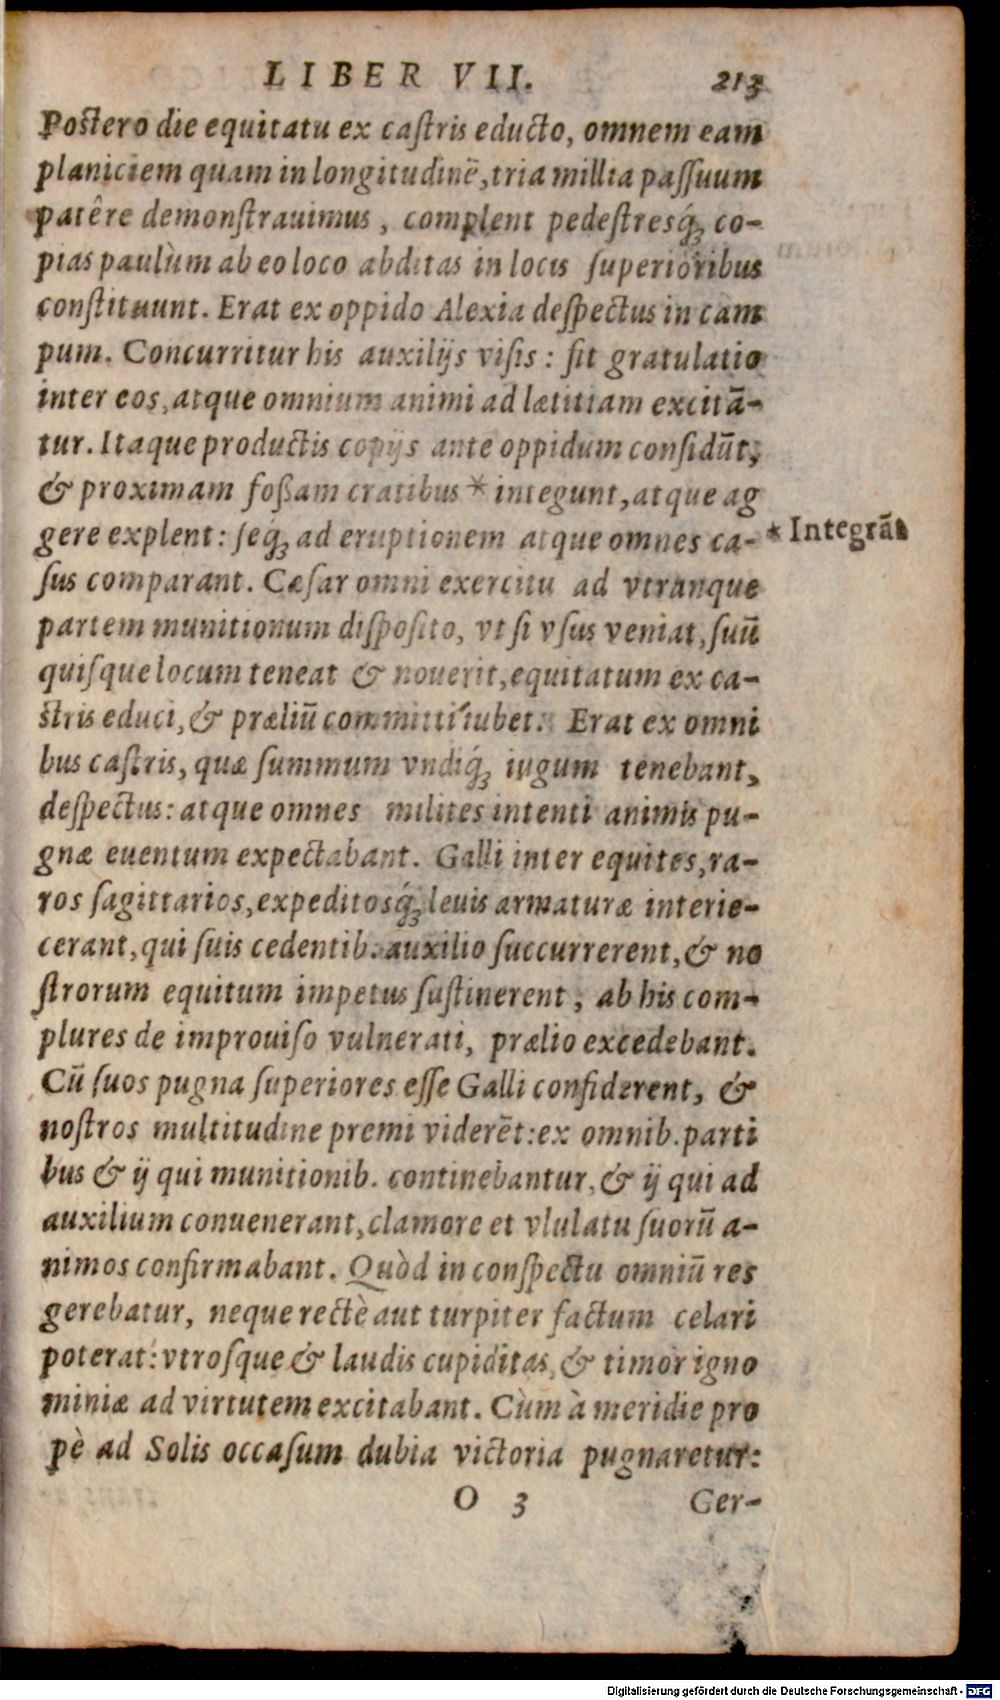 LIBER VII. 213
Postero die equitatu ex caſtris educto, omnem eam
planiciem quam in longitudinẽ, tria millia paſſuum
patêre demonſtrauimus, complent pedeſtresq́ꝫ co-
pias paulùm ab eo loco abditas in locis ſuperioribus
conſtituunt. Erat ex oppido Alexia deſpectus in cam
pum. Concurritur his auxilijs viſis: fit gratulatio
inter eos, atque omnium animi ad lætitiam excitã-
tur. Itaque productis copijs ante oppidum conſidũt,
& proximam foßam cratibus * integunt, atque ag
gere explent: ſeq́ꝫ ad eruptionem atque omnes ca-
* Integrãt
ſus comparant. Cæſar omni exercitu ad vtranque
partem munitionum diſpoſito, vt ſi vſus veniat, ſuũ
quiſque locum teneat & nouerit, equitatum ex ca-
ſtris educi, & præliũ committi iubet. Erat ex omni
bus caſtris, quæ ſummum vndiq́ꝫ iugum tenebant,
deſpectus: atque omnes milites intenti animis pu-
gnæ euentum expectabant. Galli inter equites, ra-
ros ſagittarios, expeditosq́ꝫ leuis armaturæ interie-
cerant, qui ſuis cedentib. auxilio ſuccurrerent, & no
ſtrorum equitum impetus ſuſtinerent, ab his com-
plures de improuiſo vulnerati, prælio excedebant.
Cũ ſuos pugna ſuperiores eſſe Galli confiderent, &
noſtros multitudine premi viderẽt: ex omnib. parti
bus & ij qui munitionib. continebantur, & ij qui ad
auxilium conuenerant, clamore et vlulatu ſuorũ a-
nimos confirmabant. Quòd in conſpectu omniũ res
gerebatur, neque rectè aut turpiter factum celari
poterat: vtroſque & laudis cupiditas, & timor igno
miniæ ad virtutem excitabant. Cùm à meridie pro
pè ad Solis occaſum dubia victoria pugnaretur:
O 3 Ger-
Digitalisierung gefördert durch die Deutsche Forschungsgemeinschaft - DFG